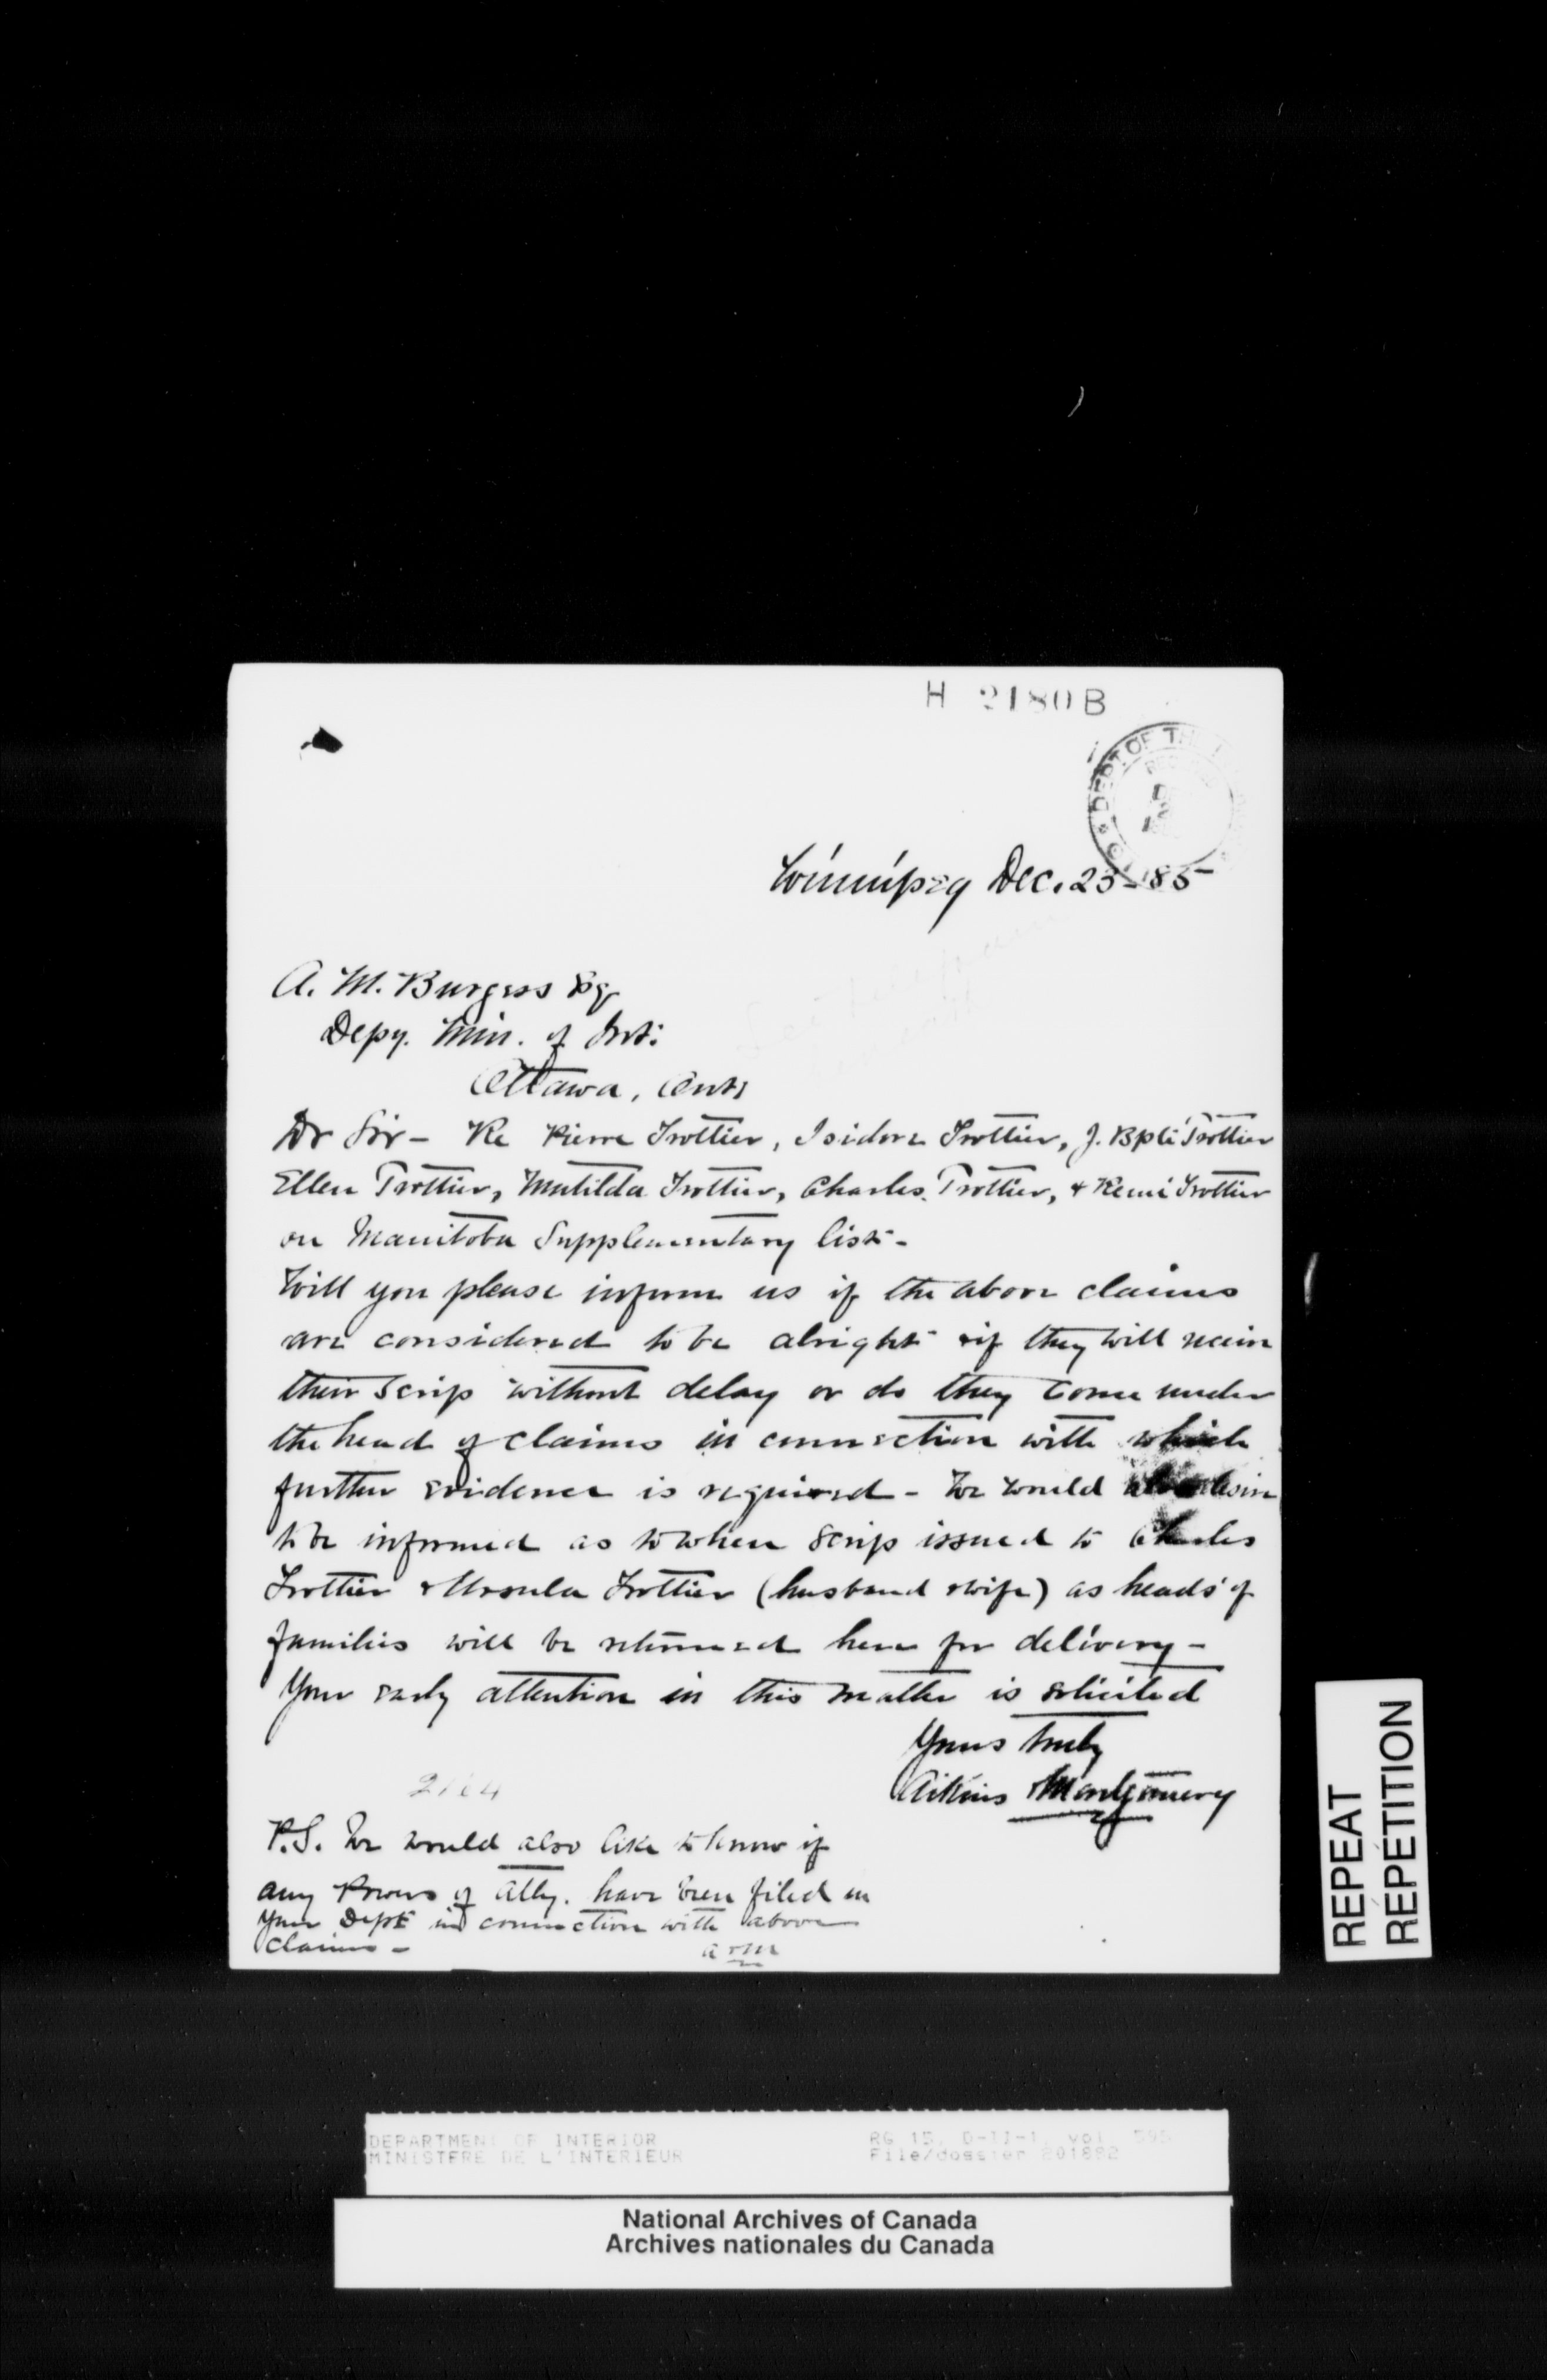 H 2180B
DEPT OF THE
Winnipeg Dec. 23-85
A. M. Burgess Esq
Depy. Min. of Int:
Ottawa, Ont:
Dr Sir- Re Pierre Trottier, Isidore Trottier, J. Bpte Trottier
Ellen Trottier, Matilda Trottier, Charles Trottier, & Remi Trottier
on Manitoba Supplementary list-
Will you please inform us if the above claims
are considered to be alright & if they will receive
their scrip without delay or do they come under
the head of claims in connection with which
further evidence is required - We would desire
to be informed as to when scrip issued to Charles
Trottier & Ursula Trottier (husband & wife) as heads of
families will be returned here for delivery-
Your early attention in this matter is solicited
Yours truly
Aikins & Montgomery
P.S. We would also like to know if
any Powers of Atty. have been filed in
your Dept in connection with above
claims -
A & M
REPEAT
RÉPÉTITION
DEPARTMENT OF INTERIOR RG 15, D-II-1, vol. 595
MINISTERE DE L'INTERIEUR File/dossier 201882
National Archives of Canada
Archives nationales du Canada